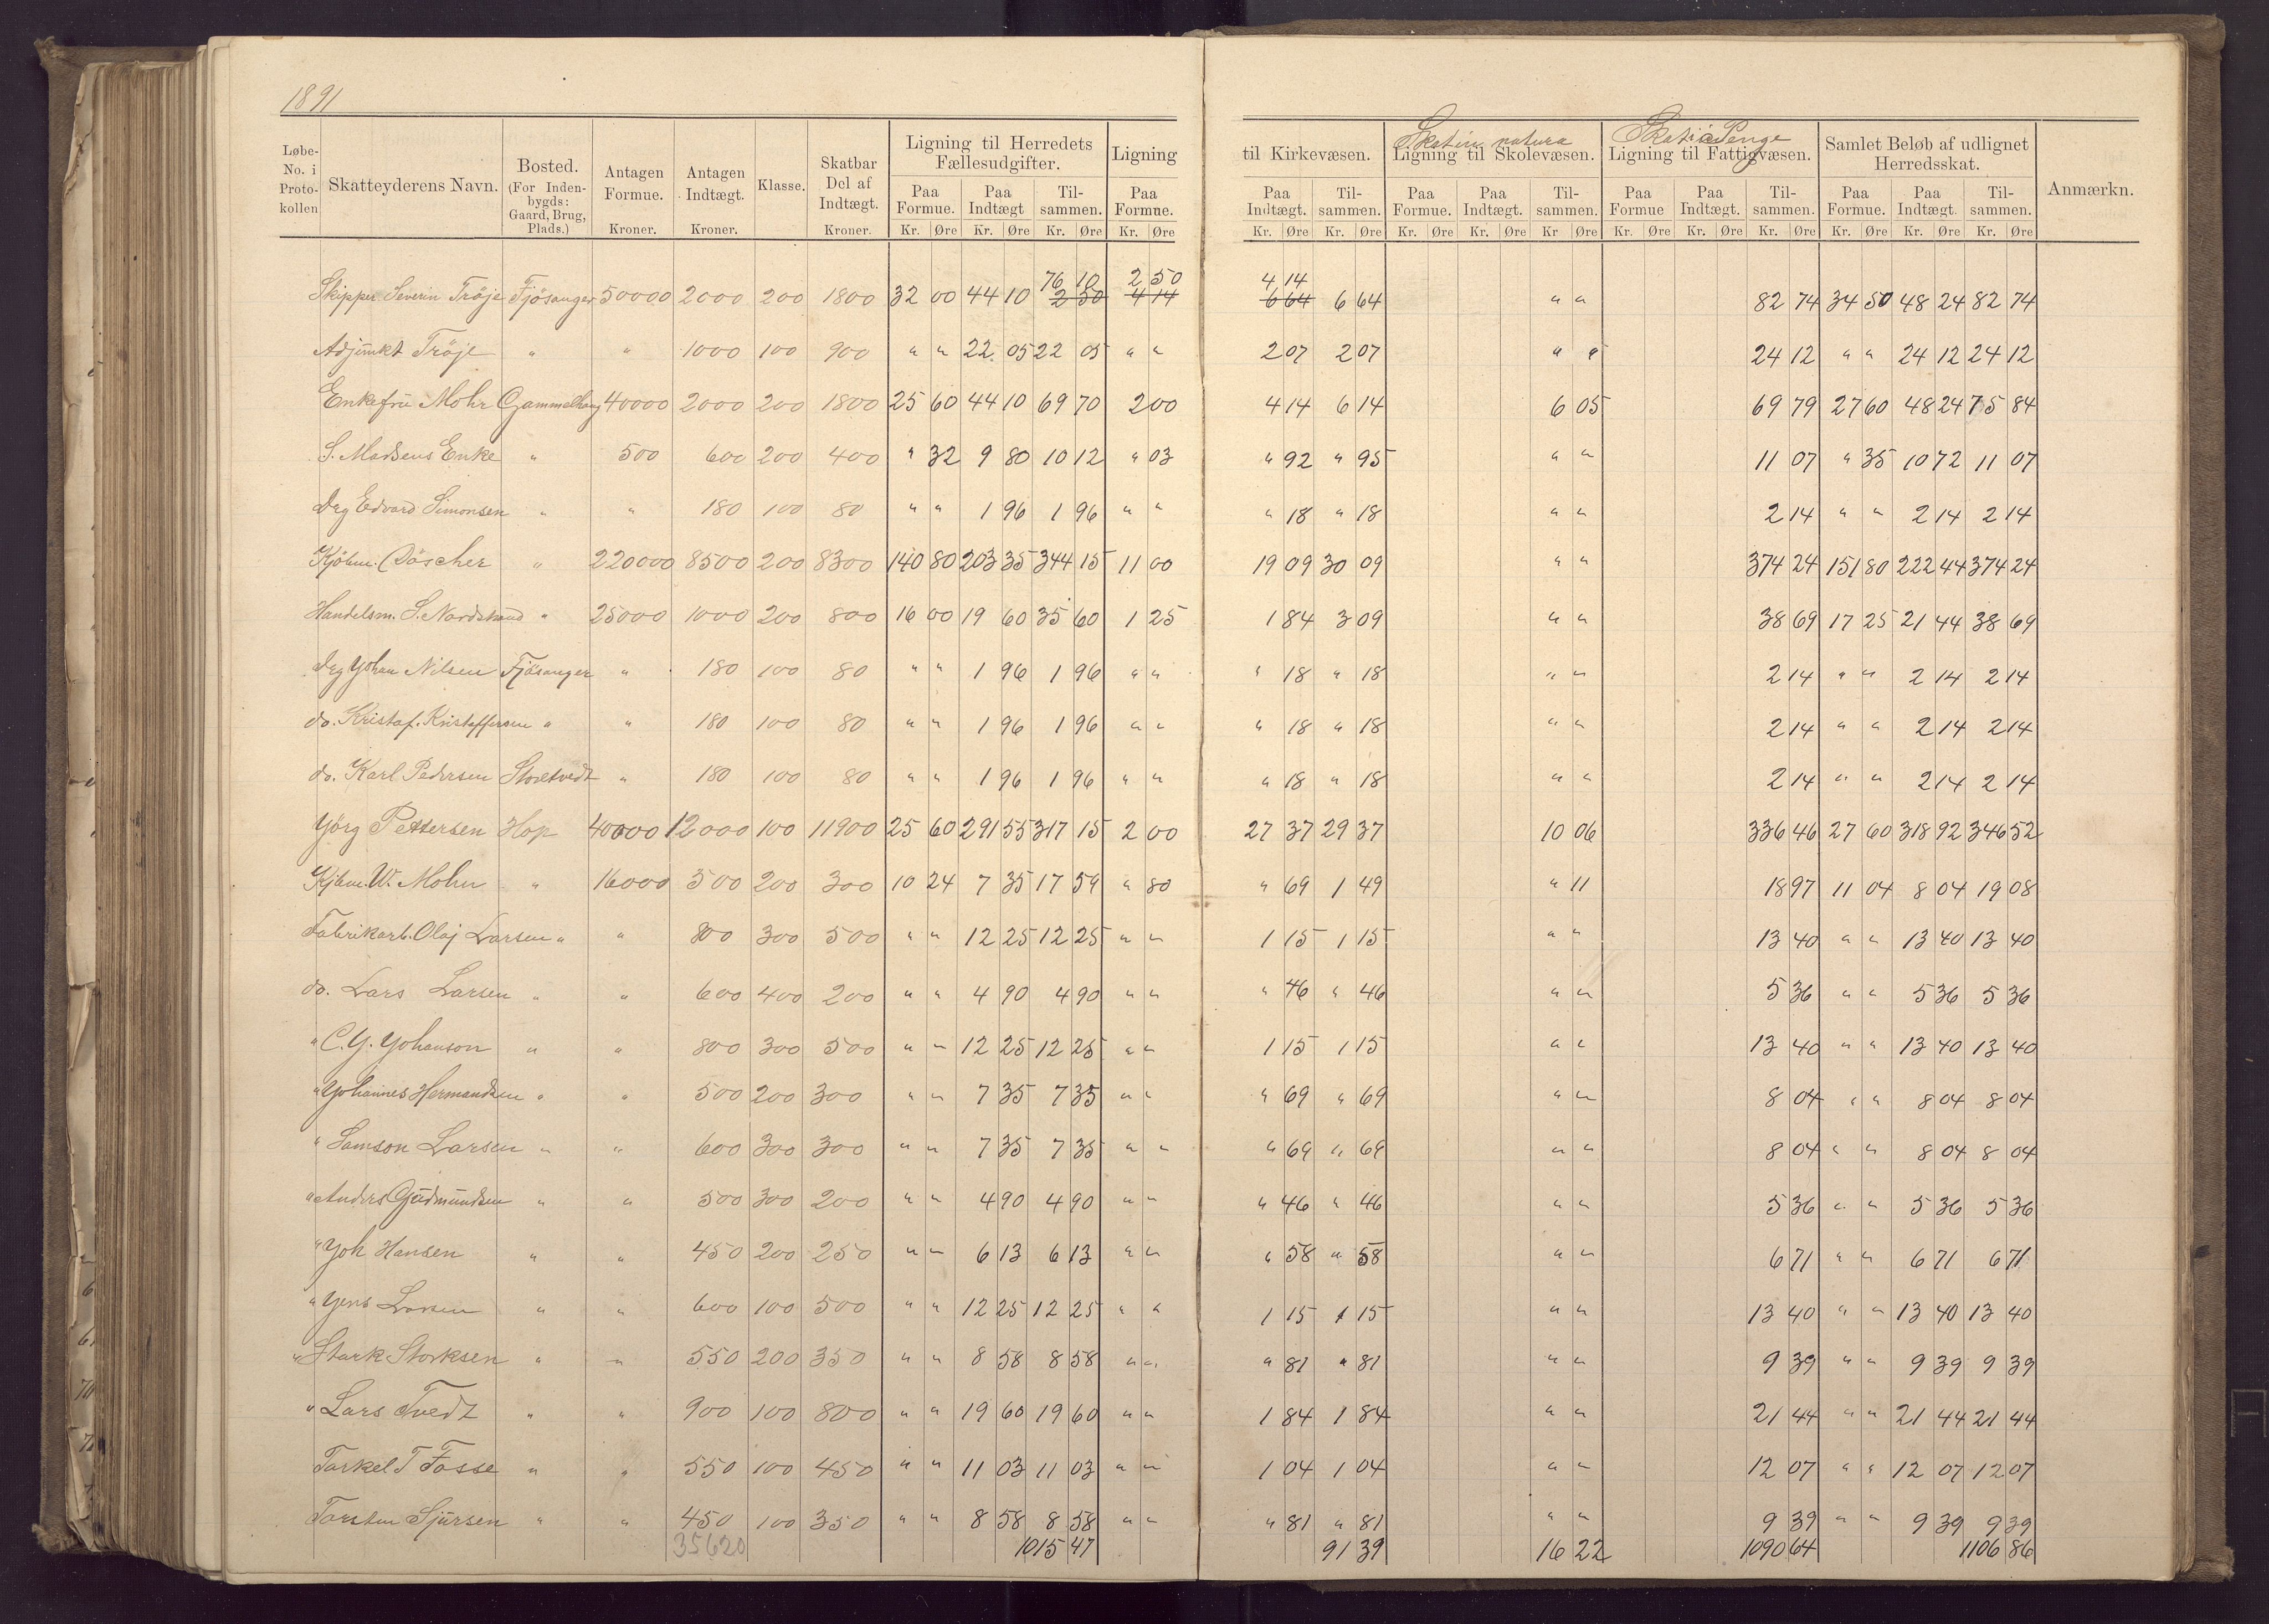 1891
Løbe-No. i Proto-kollen | Skatteyderens Navn. | Bosted. (For Inden-bygds: Gaard, Brug, Plads.) | Antagen Formue. Kroner. | Antagen Indtægt. Kroner. | Klasse. | Skatbar Del af Indtægt. Kroner. | Ligning til Herredets Fællesudgifter. Paa Formue. Kr. Øre | Paa Indtægt Kr. Øre | Til-sammen. Kr. Øre | Ligning Paa Formue. Kr. Øre | til Kirkevæsen. Paa Indtægt. Kr. Øre | Til-sammen. Kr. Øre | Skat in natura Ligning til Skolevæsen. Paa Formue. Kr. Øre | Paa Indtægt. Kr. Øre | Til-sammen. Kr Øre | Skat i Penge Ligning til Fattigvæsen. Paa Formue Kr. Øre | Paa Indtægt. Kr. Øre | Til-sammen. Kr. Øre | Samlet Beløb af udlignet Herredsskat. Paa Formue. Kr. Øre | Paa Indtægt. Kr. Øre | Til-sammen. Kr. Øre | Anmærkn.
76 10 2 50 4 14
Skipper Severin Tröje Fjösanger 50000 2000 200 1800 32 00 44 10 2 50 4 14 6 64 6 64 " " 82 74 34 50 48 24 82 74
Adjunkt Tröje " " 1000 100 900 " " 22 05 22 05 " " 2 07 2 07 " " 24 12 " " 24 12 24 12
Enkefru Mohr Gammelhaug 40000 2000 200 1800 25 60 44 10 69 70 2 00 4 14 6 14 6 05 69 79 27 60 48 24 75 84
S. Madsens Enke " 500 600 200 400 " 32 9 80 10 12 " 03 " 92 " 95 " " 11 07 " 35 10 72 11 07
Drg Edvard Simonsen " " 180 100 80 " " 1 96 1 96 " " " 18 " 18 " " 2 14 " " 2 14 2 14
Kjöbm. Döscher " 220000 8500 200 8300 140 80 203 35 344 15 11 00 19 09 30 09 " " 374 24 151 80 222 44 374 24
Handelsm. S. Nordstrand " 25000 1000 200 800 16 00 19 60 35 60 1 25 1 84 3 09 " " 38 69 17 25 21 44 38 69
Drg Johan Nilsen Fjösanger " 180 100 80 " " 1 96 1 96 " " " 18 " 18 " " 2 14 " " 2 14 2 14
do. Kristof. Kristoffersen " " 180 100 80 " " 1 96 1 96 " " " 18 " 18 " " 2 14 " " 2 14 2 14
do. Karl Pedersen Storetvedt " 180 100 80 " " 1 96 1 96 " " " 18 " 18 " " 2 14 " " 2 14 2 14
Jörg Pettersen Hop 40000 12000 100 11900 25 60 291 55 317 15 2 00 27 37 29 37 10 06 336 46 27 60 318 92 346 52
Kjbm. W. Mohn " 16000 500 200 300 10 24 7 35 17 59 " 80 " 69 1 49 " 11 18 97 11 04 8 04 19 08
Fabrikarb. Olaj Larsen " " 800 300 500 " " 12 25 12 25 " " 1 15 1 15 " " 13 40 " " 13 40 13 40
do. Lars Larsen " " 600 400 200 " " 4 90 4 90 " " " 46 " 46 " " 5 36 " " 5 36 5 36
" C. J. Johanson " " 800 300 500 " " 12 25 12 25 " " 1 15 1 15 " " 13 40 " " 13 40 13 40
" Johannes Hermandsen " " 500 200 300 " " 7 35 7 35 " " " 69 " 69 " " 8 04 " " 8 04 8 04
" Samson Larsen " " 600 300 300 " " 7 35 7 35 " " " 69 " 69 " " 8 04 " " 8 04 8 04
" Anders Gudmundsen " " 500 300 200 " " 4 90 4 90 " " " 46 " 46 " " 5 36 " " 5 36 5 36
" Joh Hansen " " 450 200 250 " " 6 13 6 13 " " " 58 " 58 " " 6 71 " " 6 71 6 71
" Jens Larsen " " 600 100 500 " " 12 25 12 25 " " 1 15 1 15 " " 13 40 " " 13 40 13 40
" Stark Storksen " " 550 200 350 " " 8 58 8 58 " " " 81 " 81 " " 9 39 " " 9 39 9 39
" Lars Tvedt " " 900 100 800 " " 19 60 19 60 " " 1 84 1 84 " " 21 44 " " 21 44 21 44
Torkel T Fosse " " 550 100 450 " " 11 03 11 03 " " 1 04 1 04 " " 12 07 " " 12 07 12 07
Torsten Sjursen " " 450 100 350 " " 8 58 8 58 " " " 81 " 81 " " 9 39 " " 9 39 9 39
35620 1015 47 91 39 16 22 1090 64 1106 86